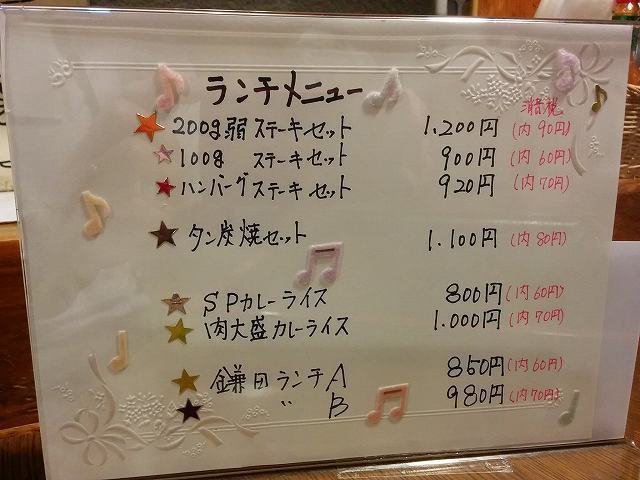 ランチメニュー
消費税
200g弱 ステーキセット 1.200円 (内 90円)
100g ステーキセット 900円 (内 60円)
ハンバーグステーキセット 920円 (内 70円)
タン炭焼セット 1.100円 (内 80円)
SPカレーライス 800円 (内 60円)
肉大盛カレーライス 1.000円 (内 70円)
鎌田ランチ A 850円 (内 60円)
〃 B 980円 (内 70円)